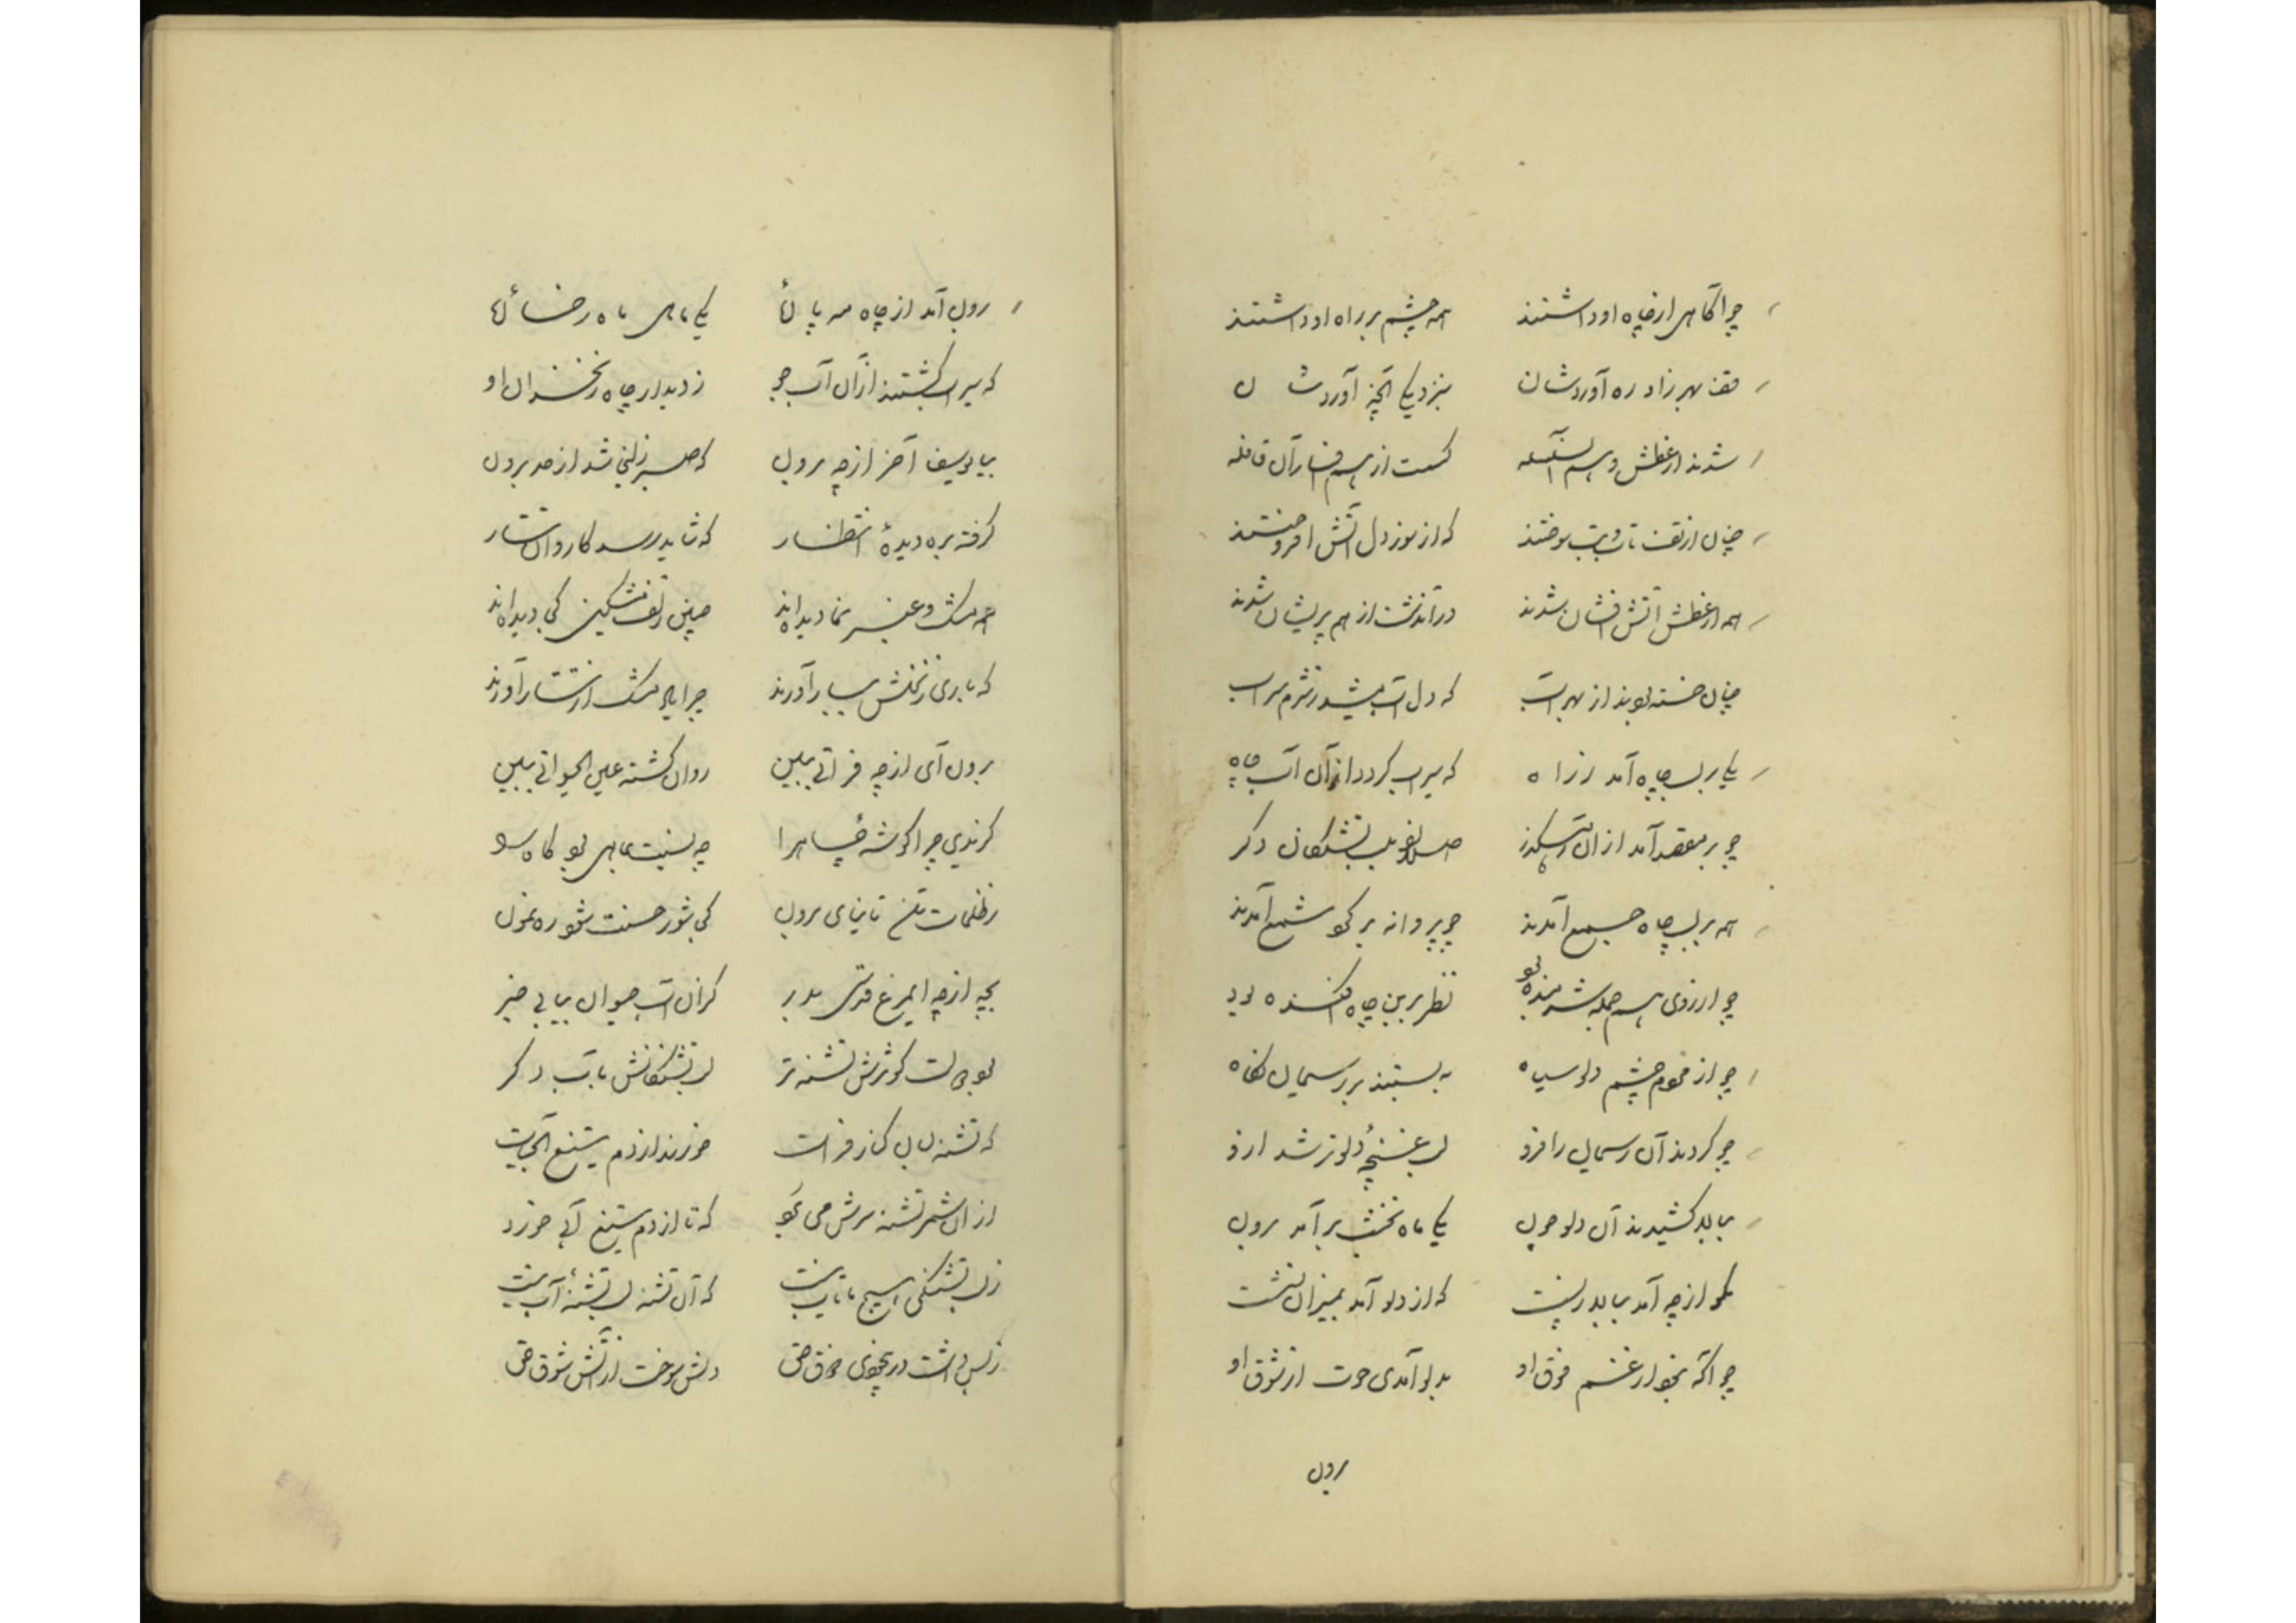 چو آگاهی از چاه او داشتند همه چشم بر راه او داشتند
قضا بهر زاد ره آوردشان بنزدیکی آنچه آوردشان
شدند از عطش و هم آن سلسله گسست از هم افسار آن قافله
چنان از تف تاب و تب سوختند که از سوز دل آتش افروختند
همه از عطش آتش افشان شدند در آندشت از هم پریشان شدند
چنان خسته بودند از بهر آب که دل آب میشد ز شرم سراب
یکی بر لب چاه آمد ز راه که سیراب گردد از آن آب چاه
چو بر مقصد آمد از آن رهگذر صلا زد بلب تشنگان دگر
همه بر لب چاه جمع آمدند چو پروانه بر گرد شمع آمدند
چو از روی هم جمله شرمنده بود نظر بر بن چاه افکنده بود
چو از قوم چشم دلو سیاه ببستند بر ریسمان گناه
چو کردند آن ریسمان را فرو لب غنچه دلو تر شد از او
ببالا کشیدند آن دلو چون یکی ماه نخشب برآمد برون
مگو از چه آمد ببالا درست که از دلو آمد بمیزان نشست
چو آگه نبود از غم فوق او بدلو آمدی حوت از شوق او
برون
برون آمد از چاه مه پاره‌ای یکی ماهی ماه رخساره‌ای
که سیراب گشتند از آن آب جو ز دیدار چاه زنخدان او
بیا یوسف آخر از چه برون که صبر زلیخا شد از حد برون
گرفته بره دیده انتظار که شاید رسد کاروان تتار
همه مشک و عنبر نما دیده‌اند چنین زلف مشکین کجا دیده‌اند
که باری ز زلفش ببار آورند چرا بار مشک از تتار آورند
برون آی از چه فراتی ببین روان گشته عین الحیوتی ببین
گزیدی چرا گوشه چاه را چه نسبت بماهی بود کاه را
ز ظلمات تن تا نیایی برون کی شور حسنت شود رهنمون
بجه از چه ای مرغ قدسی بدر کز آن آب حیوان بیابی خبر
بود لب کوثرش تشنه تر لب تشنگانش بآب دگر
که تشنه لبان کنار فرات خورند از دم تیغ آب حیات
از آن شمر تشنه سرش می برد که تا از دم تیغ آبی خورد
ز لب تشنگی هیچ بیتاب نیست که آن تشنه لب تشنه آب نیست
ز بس داشت در بیخودی ذوق حق دلش سوخت از آتش شوق حق